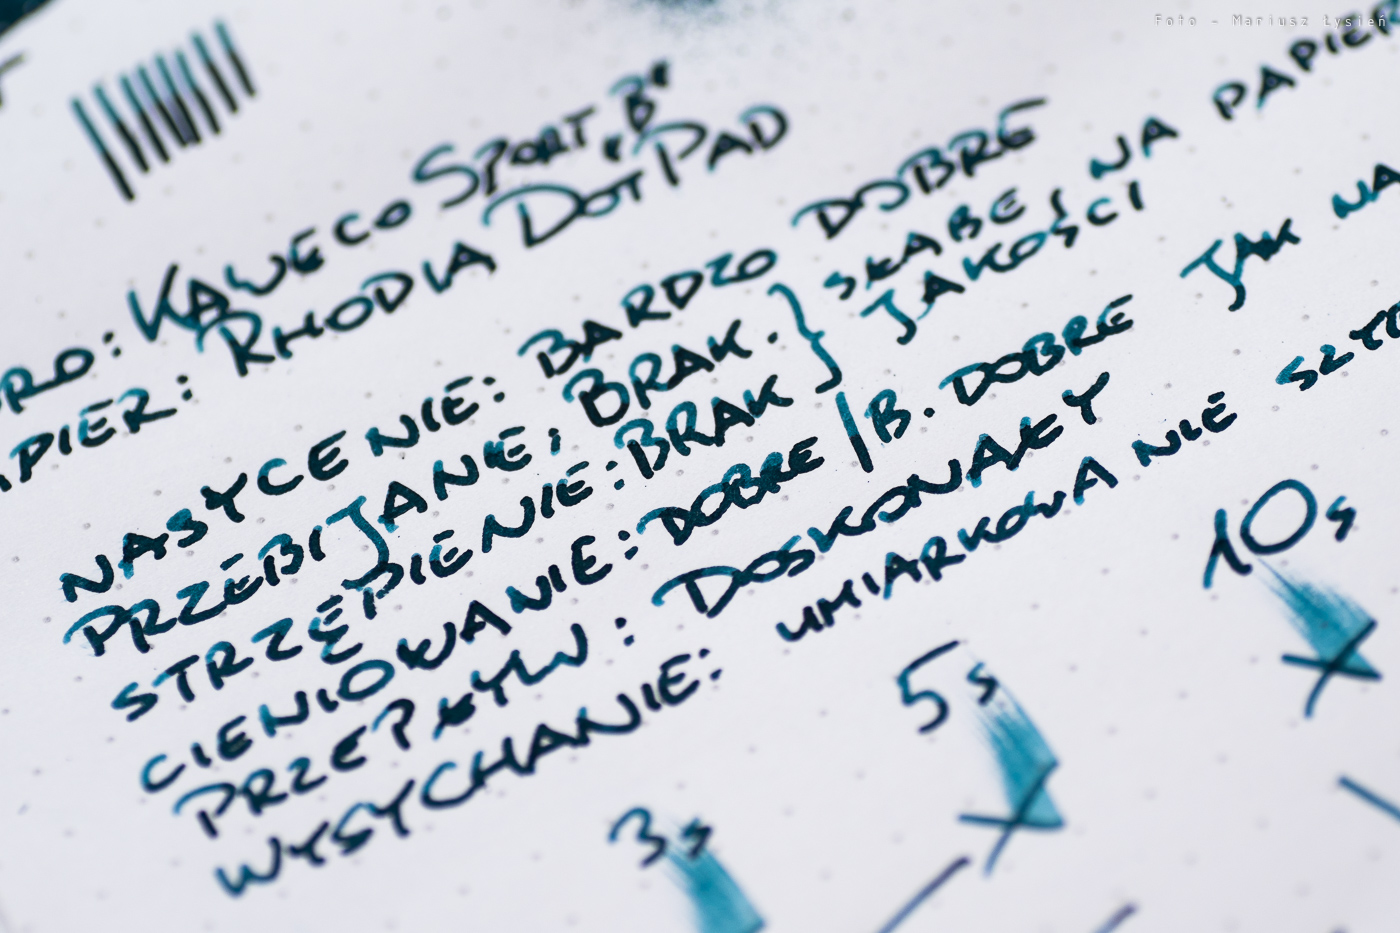 Foto - Mariusz Łysień
ÓRO: KAWECO SPORT „B"
PAPIER: RHODIA DOT PAD
NASYCENIE: BARDZO DOBRE
PRZEBIJANIE: BRAK. } SŁABEJ NA PAPIER
STRZĘPIENIE: BRAK } JAKOŚCI
CIENIOWANIE: DOBRE / B. DOBRE JAK NA
PRZEPŁYW: DOSKONAŁY
WYSYCHANIE: UMIARKOWA NIE
3s 5s 10s